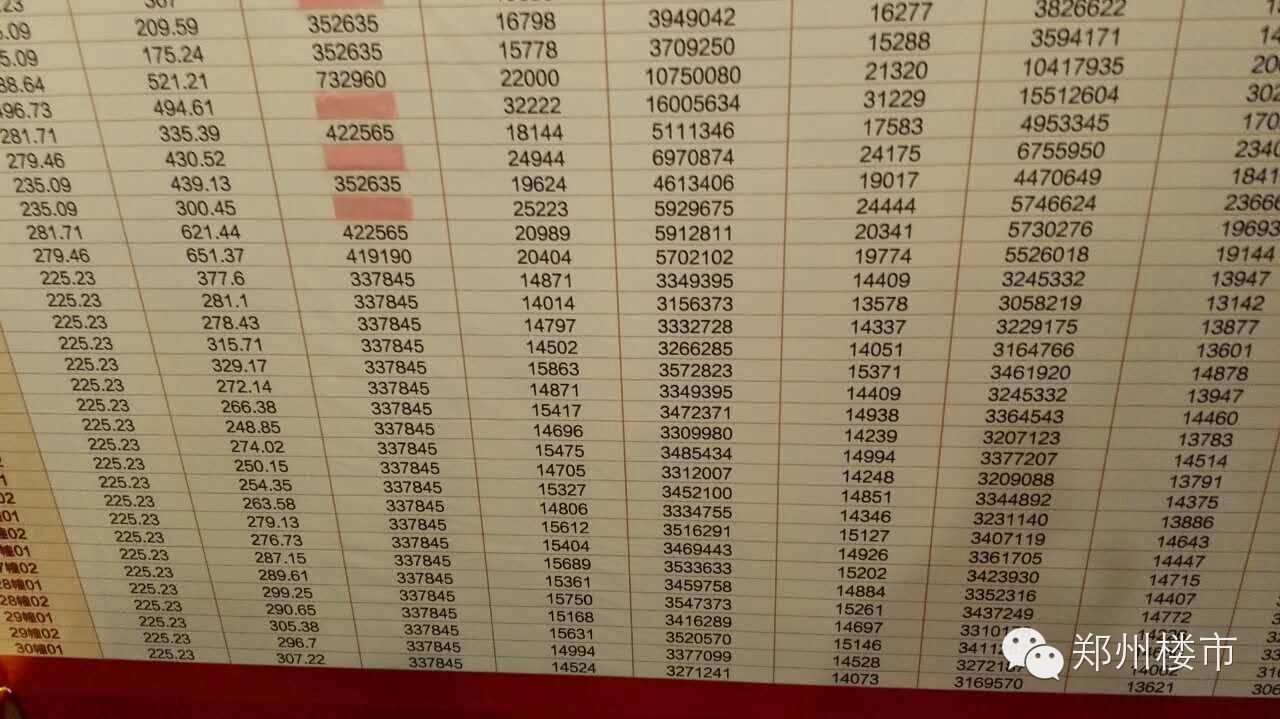 367
209.59 352635 16798 3949042 16277 3826622
175.24 352635 15778 3709250 15288 3594171
521.21 732960 22000 10750080 21320 10417935
494.61 32222 16005634 31229 15512604
281.71 335.39 422565 18144 5111346 17583 4953345
279.46 430.52 24944 6970874 24175 6755950
235.09 439.13 352635 19624 4613406 19017 4470649
235.09 300.45 25223 5929675 24444 5746624
281.71 621.44 422565 20989 5912811 20341 5730276 19693
279.46 651.37 419190 20404 5702102 19774 5526018 19144
225.23 377.6 337845 14871 3349395 14409 3245332 13947
225.23 281.1 337845 14014 3156373 13578 3058219 13142
225.23 278.43 337845 14797 3332728 14337 3229175 13877
225.23 315.71 337845 14502 3266285 14051 3164766 13601
225.23 329.17 337845 15863 3572823 15371 3461920 14878
225.23 272.14 337845 14871 3349395 14409 3245332 13947
225.23 266.38 337845 15417 3472371 14938 3364543 14460
225.23 248.85 337845 14696 3309980 14239 3207123 13783
225.23 274.02 337845 15475 3485434 14994 3377207 14514
225.23 250.15 337845 14705 3312007 14248 3209088 13791
225.23 254.35 337845 15327 3452100 14851 3344892 14375
225.23 263.58 337845 14806 3334755 14346 3231140 13886
225.23 279.13 337845 15612 3516291 15127 3407119 14643
225.23 276.73 337845 15404 3469443 14926 3361705 14447
225.23 287.15 337845 15689 3533633 15202 3423930 14715
225.23 289.61 337845 15361 3459758 14884 3352316 14407
225.23 299.25 337845 15750 3547373 15261 3437249 14772
28幢02 225.23 290.65 337845 15168 3416289 14697
29幢01 225.23 305.38 337845 15631 3520570 15146
29幢02 225.23 296.7 337845 14994 3377099 14528
30幢01 225.23 307.22 337845 14524 3271241 14073 3169570 13621
郑州楼市